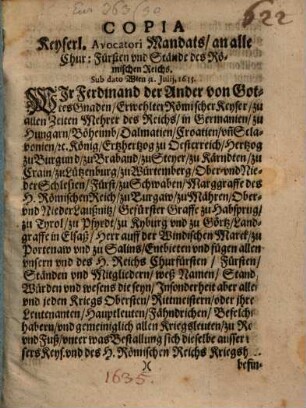 622
COPIA
Keyserl. Avocatori Mandats/ an alle
Chur: Fürsten vnd Stände des Rö-
mischen Reichs.
Sub dato Wien Julij, 1635.
WIr Ferdinand der Ander von Got-
tes Gnaden/ Erwehlter Römischer Keyser/ zu
allen Zeiten Mehrer des Reichs/ in Germanien/ zu
Hungarn/ Böheimb/ Dalmatien/ Croatien/ vñ Sla-
vonien/ ꝛc. König/ Ertzhertzog zu Oesterreich/ Hertzog
zu Burgund/ zu Braband/ zu Steyer/ zu Kärndten/ zu
Crain/ zu Lützenburg/ zu Würtemberg/ Ober- vnd Nie-
der Schlesien/ Fürst/ zu Schwaben/ Marggraffe des
H. Römischen Reich/ zu Burgaw/ zu Mähren/ Ober-
vnd Nieder Laußnitz/ Gefürster Graffe zu Habspurg/
zu Tyrol/ zu Pfyrdt/ zu Kyburg vnd zu Görtz/ Land-
graffe in Elsaß/ Herr auff der Windischen Marck/ zu
Portenaw vnd zu Salins/ Entbieten vnd fügen allen
vnsern vnd des H. Reichs Churfürsten/ Fürsten/
Ständen vnd Mitgliedern/ weß Namen/ Stand/
Würden vnd wesens die seyn/ Insonderheit aber alle
vnd jeden Kriegs Obersten/ Rittmeistern/ oder ihre
Leutenanten/ Hauptleuten/ Fähndrichen/ Befelch-
habern/ vnd gemeiniglich allen Kriegsleuten/ zu Ro
vnd Fuß/ vnter was Bestallung sich dieselbe ausser
sers Keys. vnd des H. Römischen Reichs Kriegsh
befin-
1635.